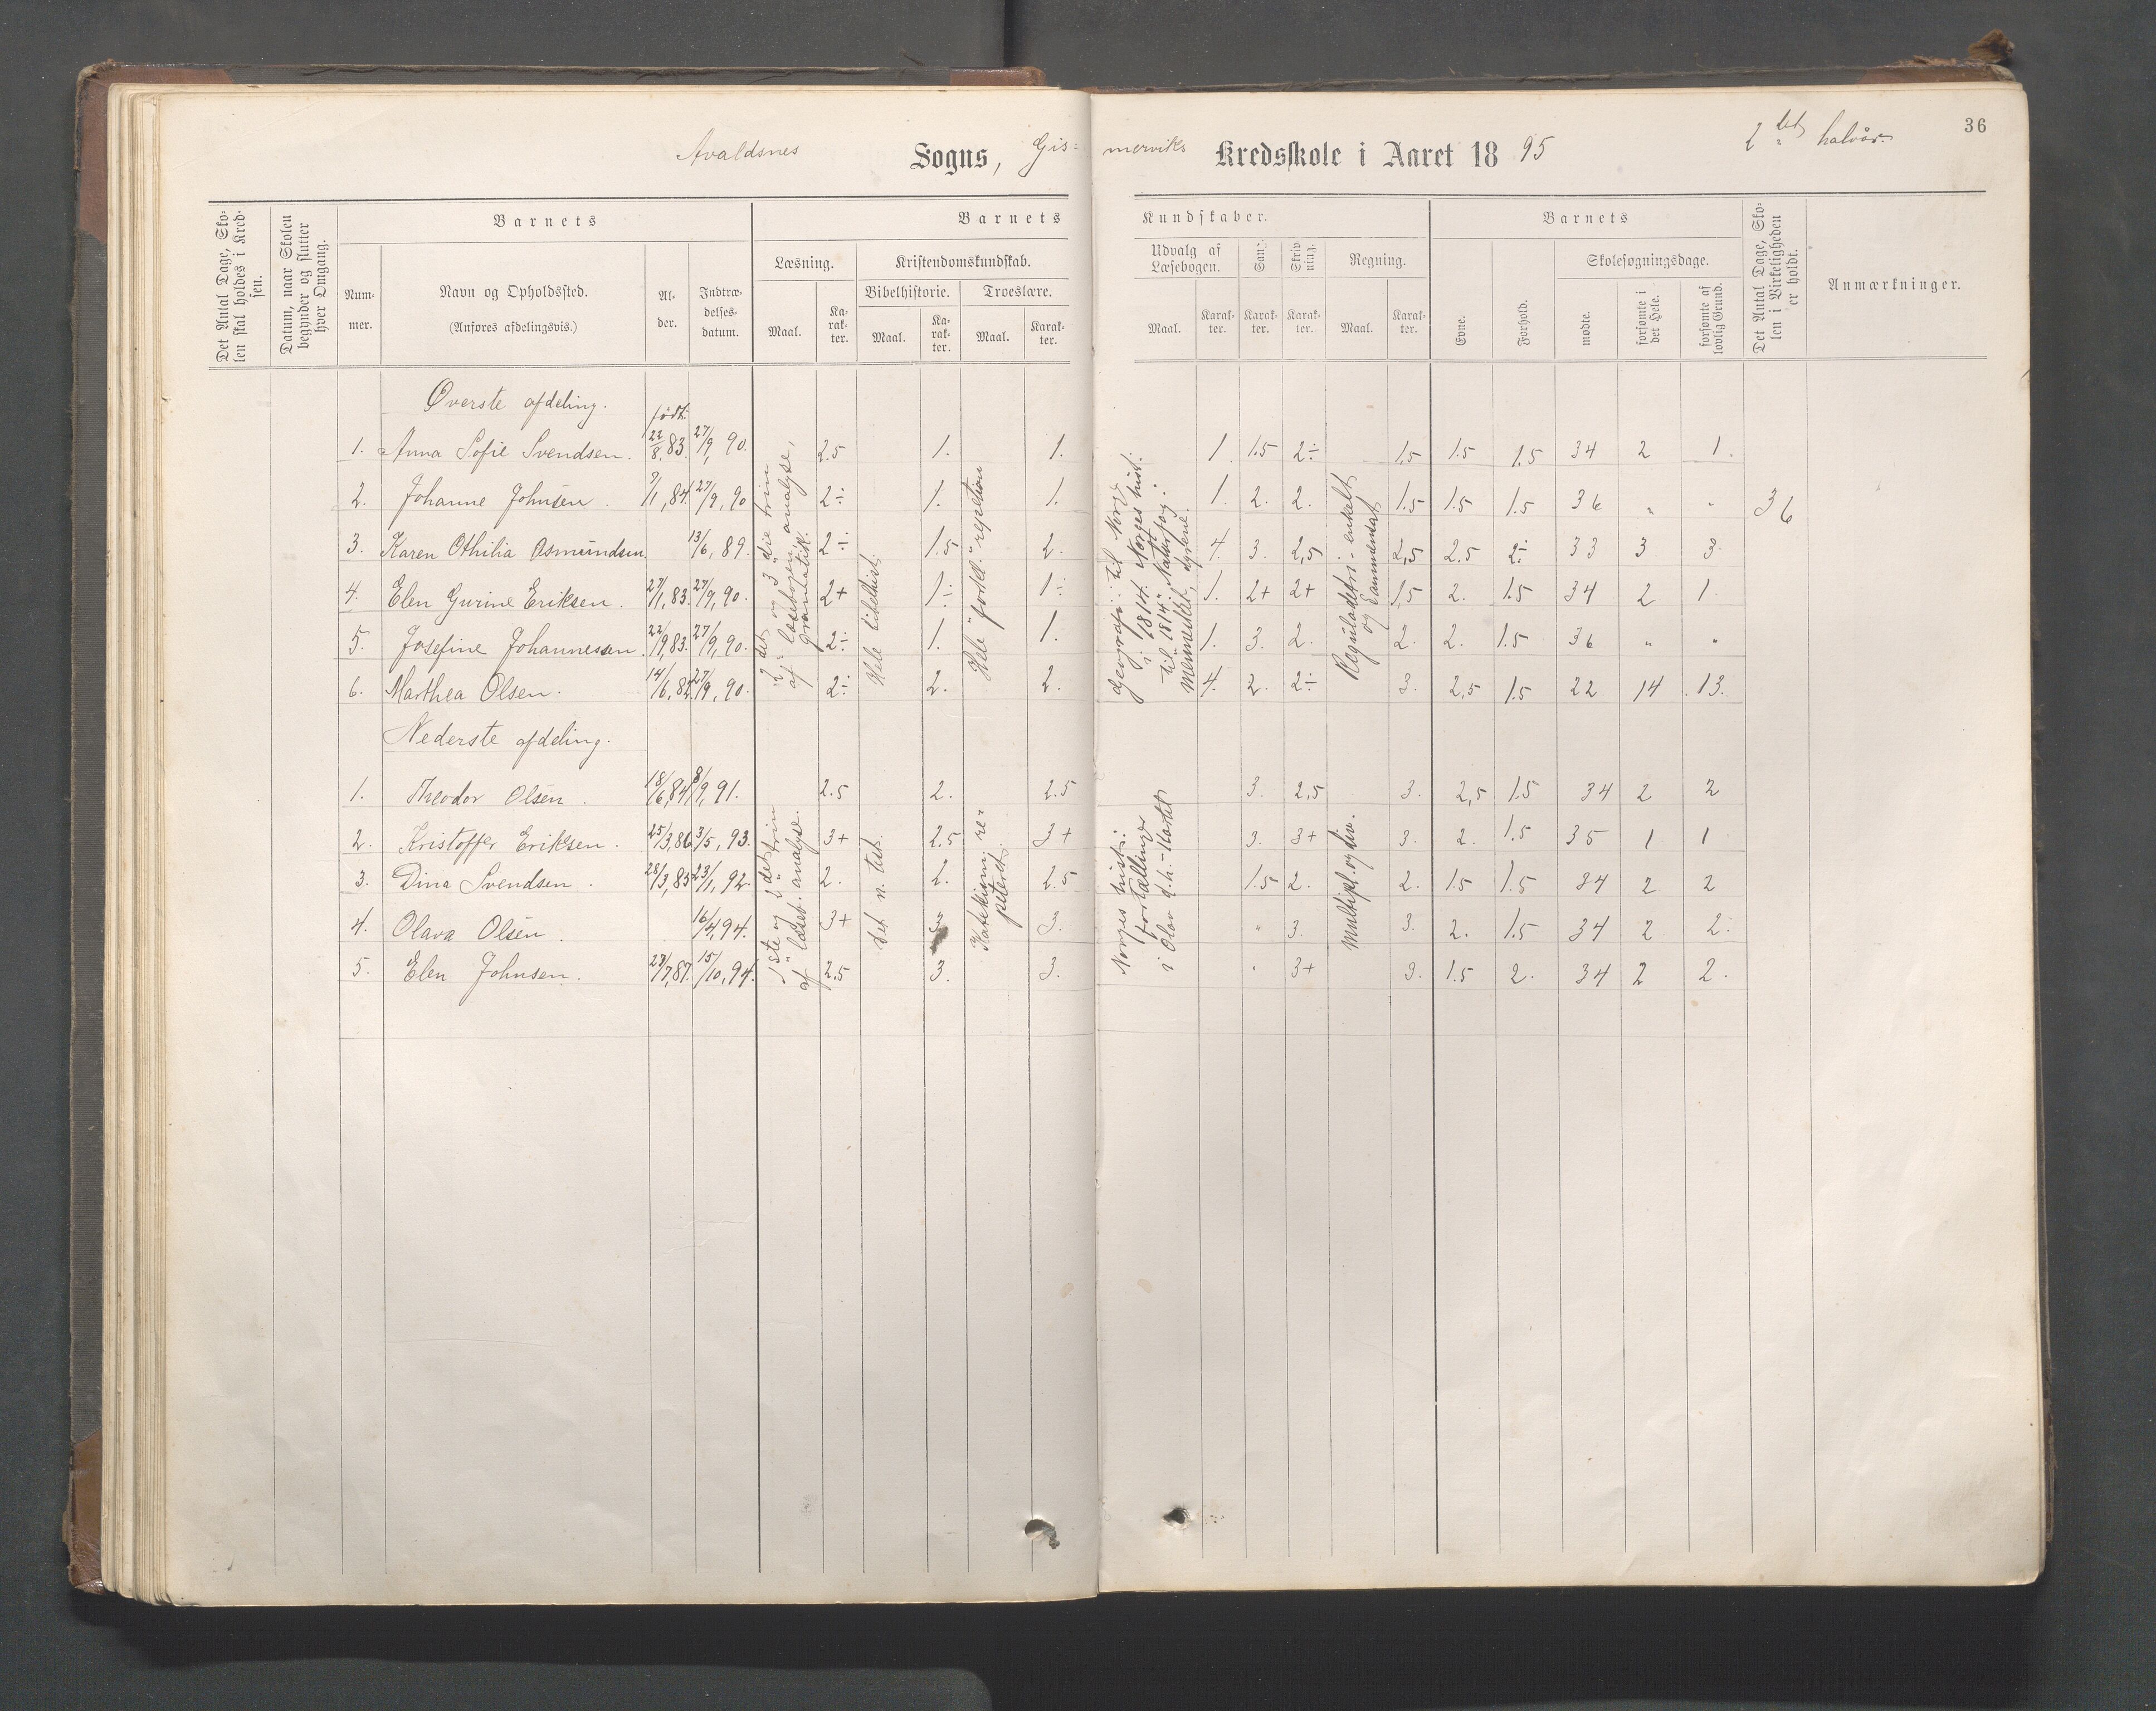 36
Avaldsnes Sogns, Gis= merviks Kredsskole i Aaret 18 95 2 det halvår.
Det Antal Dage, Sko-
len skal holdes i Kred-
sen.
Datum, naar Skolen
begynder og slutter
hver Omgang.
Barnets
Barnets Kundskaber.
Barnets
Num-
mer.
Navn og Opholdssted.
(Anføres afdelingsvis.)
Al-
der.
Indtræ-
delses-
datum.
Læsning.
Maal.
Ka-
rak-
ter.
Kristendomskundskab.
Bibelhistorie.
Maal.
Ka-
rak-
ter.
Troeslære.
Maal.
Karak-
ter.
Udvalg af
Læsebogen.
Maal.
Karak-
ter.
Sang.
Karak-
ter.
Skriv-
ning.
Karak-
ter.
Regning.
Maal.
Karak-
ter.
Evne.
Forhold.
Skolesøgningsdage.
mødte.
forsømte i
det Hele.
forsømte af
lovlig Grund.
Det Antal Dage, Sko-
len i Virkeligheden
er holdt.
Anmærkninger.
Øverste afdeling.
født:
1. Anna Sofie Svendsen. 22/8, 83. 27/9, 90. 2.5 1. 1. 1. 1.5 2÷ 1.5 1.5 1.5 34 2 1.
2. Johanne Johnsen. 9/1, 84. 27/9, 90 2÷ 1. 1. 1. 2. 2. 1.5 1.5 1.5 36 " " 36
3. Karen Othilia Asmundsen. 13/6, 89. 2÷ 1.5 2. 4. 3. 2,5 2,5 2.5 2÷ 33 3 3
4. Elen Gurine Eriksen. 27/1, 83. 27/9, 90. 2+ 1÷ 1÷ 1. 2+ 2+ 1,5 2. 1.5 34 2 1
5. Josefine Johannessen. 22/9, 83. 27/9, 90. 2÷ 1. 1. 1. 3. 2. 2. 2. 1.5 36 " "
6. Marthea Olsen. 14/6, 82. 27/9, 90. 2÷ 2. 2. 4. 2. 2÷ 3. 2,5 1.5 22 14 13.
2det og 3die trin
af læsebogen, analyse,
gramatik.
Hele bibelhist.
Hele "forkl." repetion
geografi: til Norge
i 1814. Norges hist.:
til 1814. Naturfag:
Mennesket, dyrene.
Reguladetri - enkelt
og sammensat
Nederste afdeling.
1. Theodor Olsen. 18/6, 84. 18/9, 91. 2.5 2. 2.5 3. 2,5 3. 2,5 1.5 34 2 2
2. Kristoffer Eriksen. 25/3, 86 3/5, 93. 3+ 2.5 3+ 3. 3+ 3. 2. 1.5 35 1 1
3. Dina Svendsen. 28/3, 85 23/1, 92. 2. 2. 2.5 1.5 2. 2. 1.5 1.5 34 2 2
4. Olava Olsen. 16/4, 94. 3+ 3. 3. " 3. 3. 2. 1.5 34 2 2.
5. Elen Johnsen. 23/7, 87. 15/10, 94. 2.5 3. 3. " 3+ 3. 1.5 2. 34 2 2.
1ste og 2det trin
af læseb. analyse.
Det n. test.
Katekismi re-
peteret.
Norges hist.:
fortællinger
i Olav d. h.
Multipl. og div.